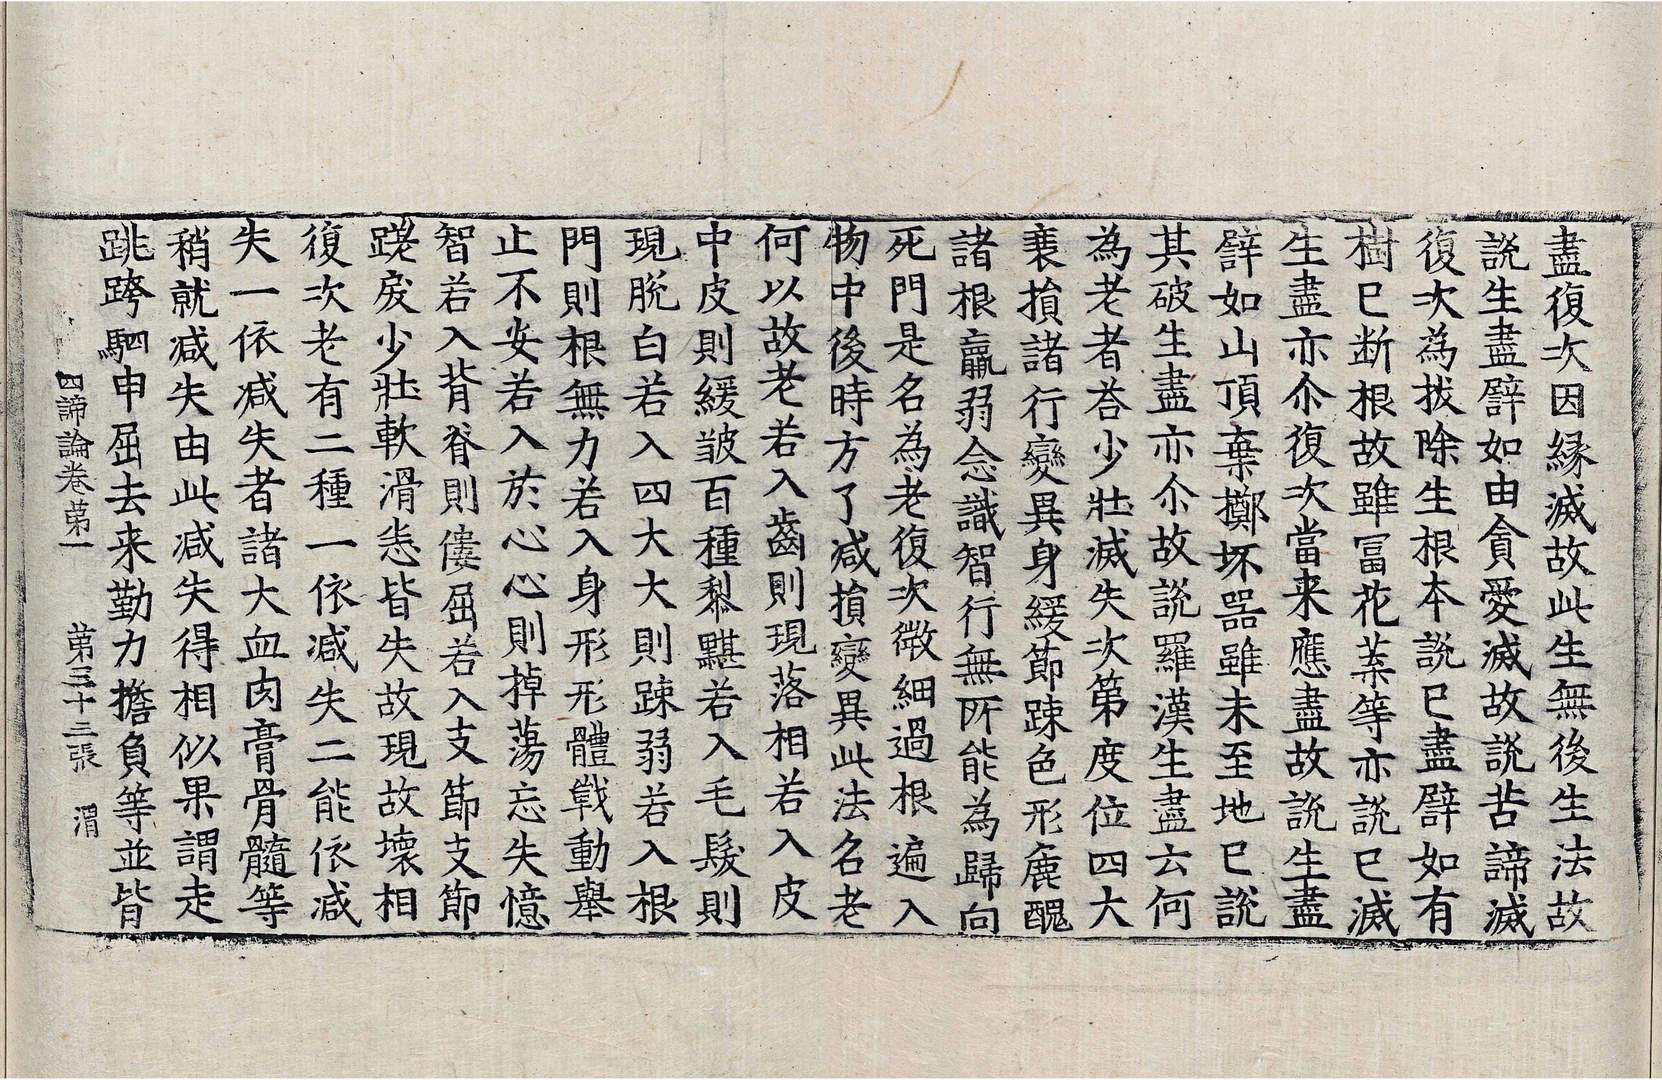 盡復次因緣滅故此生無後生法故
說生盡譬如由貪愛滅故說苦諦滅
復次為拔除生根本說已盡譬如有
樹已断根故雖冨花菓等亦説已滅
生盡亦尒復次當来應盡故説生盡
譬如山頂棄擲坏器雖未至地已說
其破生盡亦尒故説羅漢生盡云何
為老者荅少壯滅失次第度位四大
衰損諸行變異身緩節踈色形麁醜
諸根羸弱念識智行無所能為歸向
死門是名為老復次微細過根遍入
物中後時方了减損變異此法名老
何以故老若入齒則現落相若入皮
中皮則緩皺百種黎黮若入毛髮則
現脫白若入四大大則踈弱若入根
門則根無力若入身形形體戰動舉
止不安若入於心心則掉蕩忘失憶
智若入背脊則僂屈若入支節支節
蹉戾少壯軟滑恚皆失故現故壞相
復次老有二種一依减失二能依减
失一依减失者諸大血肉膏骨髓等
稍就减失由此减失得相似果謂走
跳跨駟申屈去来勤力擔負等並皆
四諦論卷苐一 苐三十三張 渭